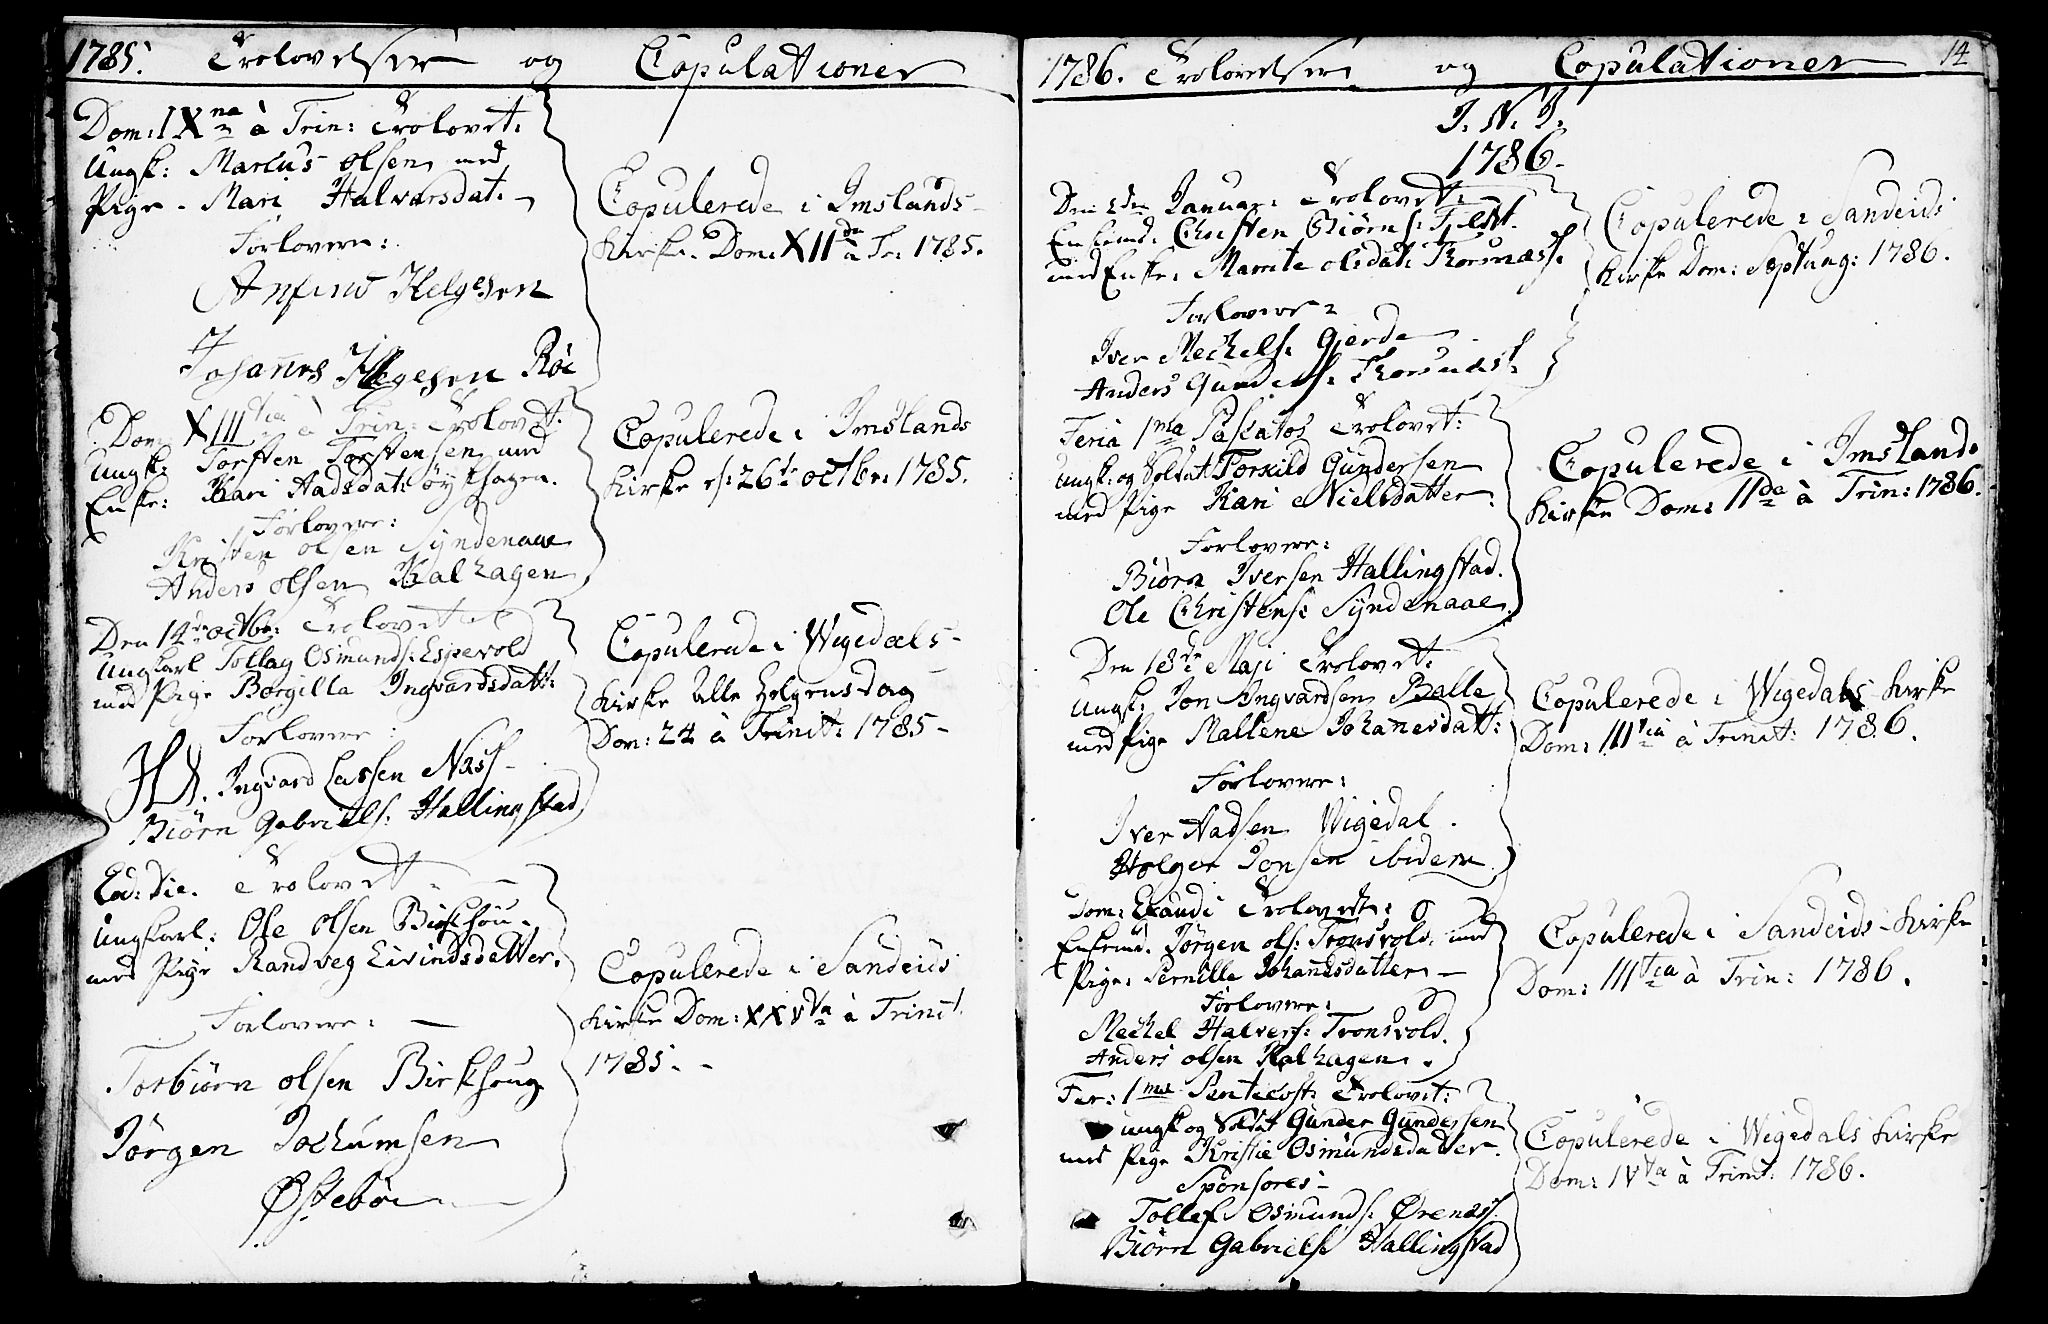 1785. Trolovelser og Copulationer
Dom: IX na à Trin: Trolovet:
Ungk: Marcus olsen med
Pige - Mari Halvarsdat: -
Forlovere:
Anfind Helgesen
Johannes Helgesen Röe
Copulerede i Imslands-
Kirke. Dom: XII da à Tr: 1785.
Dom: XIII tia à Trin: Trolovet:
Ungk: Torsten Torstensen med
Enke: Kari Aadsdat: öykhagen.
Forlovere:
Kristen olsen Syndenaae
Anders olsen Kalhagen
Copulerede i Imslands
Kirke d: 26 te octbr: 1785.
Den 14 de octbr: Trolovet
Ungkarl Tollag Osmunds: Espevold
med Pige Borgilla Ingvardsdatt:
Forlovere:
Ingvard Lassen Næss-
Biörn Gabriels: Hallingstad
Copulerede i Wigedals-
Kirke Alle Helgensdag
Dom: 24 à Trinit: 1785-
Eod: Die. Trolovet
Ungkarl: Ole Olsen Birkhou-
med Pige Randveg Eivindsdatter.
Forlovere: -
Torbiörn olsen Birkhoug
Jörgen Jochumsen
Östeböe
Copulerede i Sandeids
Kirke Dom: XXV ta à Trinit:
1785. -
1786. Trolovelser og Copulationer 14
J. N. J.
1786-
Den 2den Januar: Trolovet:
Enkemd: Christen Biörns: Fieldt.
med Enke: Marrite olsdat: Thorsnæss.
Forlovere
Iver Mechels: Gjerde
Anders Gunders: Thorsnæss:
Copulerede i Sandeids
Kirke Dom: Septuag: 1786.
Feria 1ma Pascatos Trolovet:
Ungk: og Soldat Torkild Gundersen
med Pige Kari Nielsdatter:
Forlovere:
Biörn Iversen Hallingstad.
Ole Christens: Syndenaae.
Copulerede i Imslands
Kirke Dom: II da à Trin: 1786.
Den 18de Maji Trolovet:
Ungk: Jon Ingvardsen Balle
med Pige Mallene Johanesdatt:
Forlovere:
Iver Aadsen Wigedal.
Holger Jonsen ibidem
Copulerede i Wigedals Kirke
Dom: III tia à Trinit: 1786.
Dom: Exaudi Trolovet:
Enkemd. Jörgen ols: Tronsvold, med
Pige: Pernilla Johannsdatter -
Forlovere:
Mechel Halvers: Tronsvold.
Anders olsen Kalhagen.
Copulerede i Sandeids-Kirke
Dom: III tia à Trin: 1786.
Fer: 1ma Pentecost: Trolovet:
ungk og Soldat Gunder Gundersen
med Pige Kristie Osmundsdatter.
Sponsores-
Tollef Osmunds: Örenæss.
Biörn Gabriels: Hallingstad
Copulerede i Wigedals Kirke
Dom: IV ta à Trinit: 1786.